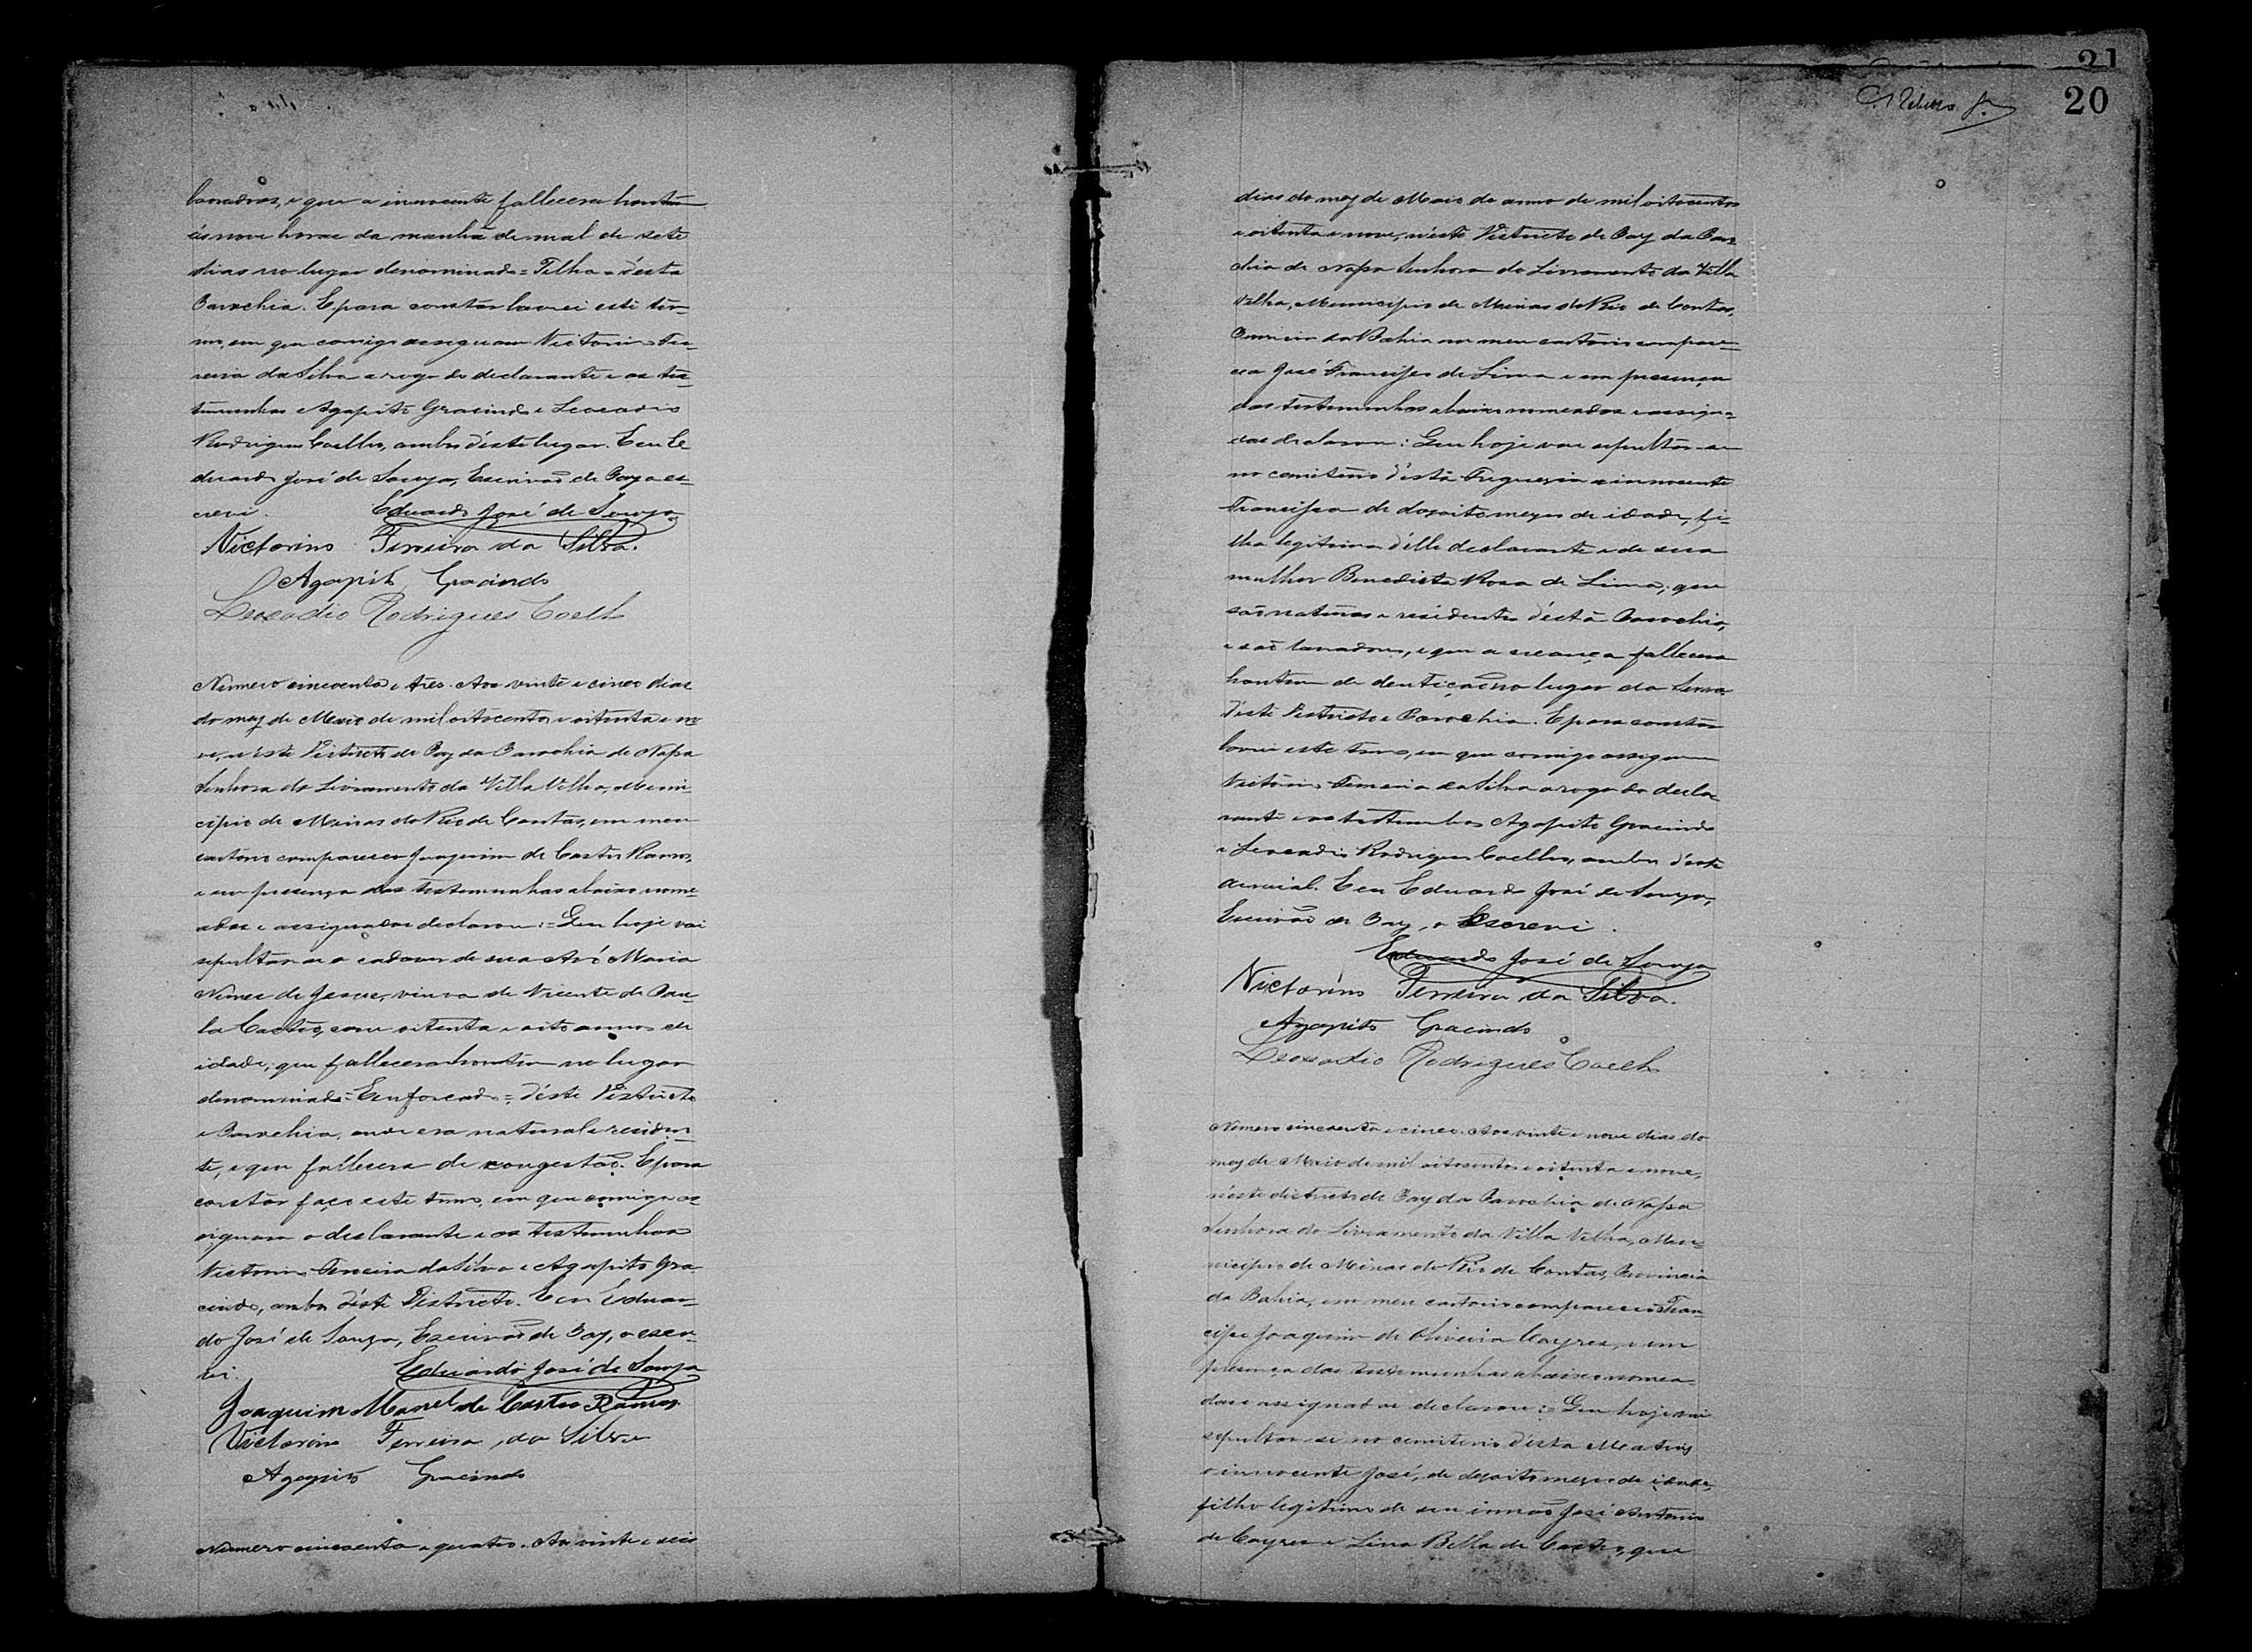 lavradores, e que a innocente fallecera hontem
ás nove horas da manhã de mal de sete
dias no lugar denominado = Telha = d'esta
Parochia. E para constar lavrei este ter-
mo, em que comigo assignam Victorino Fer-
reira da Silva a rogo do declarante e as tes-
temunhas Agapito Gracindo e Leocadio
Rodrigues Coelho, ambos d'este lugar. E eu E-
duardo José de Souza, Escrivão de Paz o es-
crevi. Eduardo José de Souza
Victorino Ferreira da Silva.
Agapito Gracindo
Leocadio Rodrigues Coelho
Numero cincoenta e tres. Aos vinte e cinco dias
do mez de Maio de mil oitocentos e oitenta e no-
ve, n'este Districto de Paz da Parochia de Nossa
Senhora do Livramento da Villa Velha, Muni-
cipio de Minas do Rio de Contas, em meu
cartorio compareceo Joaquim de Castro Ramos,
e em presença das testemunhas abaixo nome-
adas e assignadas declarou: = Que hoje vai
sepultar-se o cadaver de sua Avó Maria
Nunes de Jesus, viuva de Vicente de Pau-
la Castro, com oitenta e oito annos de
idade; que fallecera hontem no lugar
denominado = Emforcado =, d'este Districto
e Parochia, onde era natural e residen-
te, e que fallecera de congestão. E para
constar faço este termo, em que comigo as-
signam o declarante e as testemunhas
Victorino Ferreira da Silva e Agapito Gra-
cindo, ambos d'este Districto. E eu Eduar-
do José de Souza, Escrivão de Paz, o escre-
vi. Eduardo José de Souza
Joaquim Manoel de Castro Ramos
Victorino Ferreira da Silva
Agapito Gracindo
Numero cincoenta e quatro. Aos vinte e seis
21
20
dias do mez de Maio do anno de mil oitocentos
e oitenta e nove, n'este Districto de Paz da Paro-
chia de Nossa Senhora do Livramento da Villa
Velha, Municipio de Minas do Rio de Contas,
Provincia da Bahia em meu cartorio compare-
ceo José Francisco de Lima e em presença
das testemunhas abaixo nomeadas e assigna-
das declarou: Que hoje vae sepultar-se
no cemiterio d'esta Freguezia a innocente
Francisca de dezoito mezes de idade, fi-
lha legitima d'elle declarante e de sua
mulher Benedicta Rosa de Lima; que
são naturaes e residentes d'esta Parochia,
e são lavradores, e que a creança fallecera
hontem de dentição no lugar da Serra
d'este Districto e Parochia. E para constar
lavrei este termo, em que comigo assignam
Victorino Ferreira da Silva a rogo do decla-
rante e as testemunhas Agapito Gracindo
e Leocadio Rodrigues Coelho, ambos d'este
Arraial. E eu Eduardo José de Souza,
Escrivão de Paz, o Escrevi.
Eduardo José de Souza
Victorino Ferreira da Silva.
Agapito Gracindo
Leocadio Rodrigues Coelho
Numero cincoenta e cinco. Aos vinte e nove dias do
mez de Maio de mil oitocentos e oitenta e nove,
n'este districto de Paz da Parochia de Nossa
Senhora do Livramento da Villa Velha, Mu-
nicipio de Minas do Rio de Contas, Provincia
da Bahia, em meu cartorio compareceo Fran-
cisco Joaquim de Oliveira Cayres, e em
presença das testemunhas abaixo nomea-
das e assignadas declarou: = Que hoje vai
sepultar-se no cemiterio d'esta Matriz
o innocente José, de dezoito mezes de idade,
filho legitimo de seu irmão José Antonio
de Cayres e Lina Bella de Castro, que